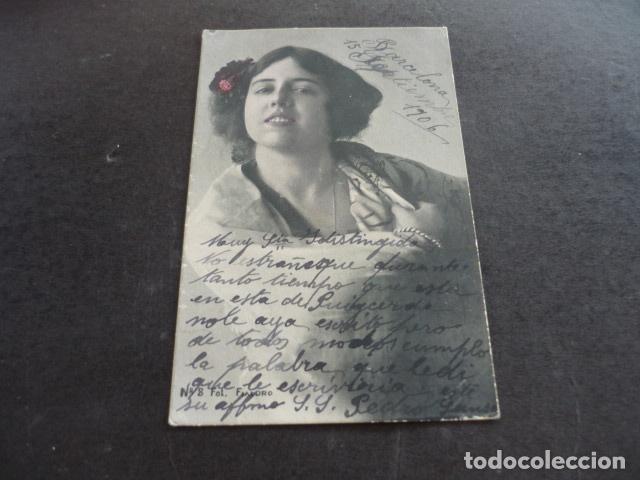 Barcelona
15 Septiembre
1906
Muy Sta Idistingida
No estrañesque durante
tanto tiempo que esta
en esta de Puigcerda
nole aya escrito pero
de todos modos cumplo
la palabra que ledi
que le escriviria
Nº 8 Fot. Fiadoro
su affmo S.S. Pedro
todocoleccion
todocoleccion.net